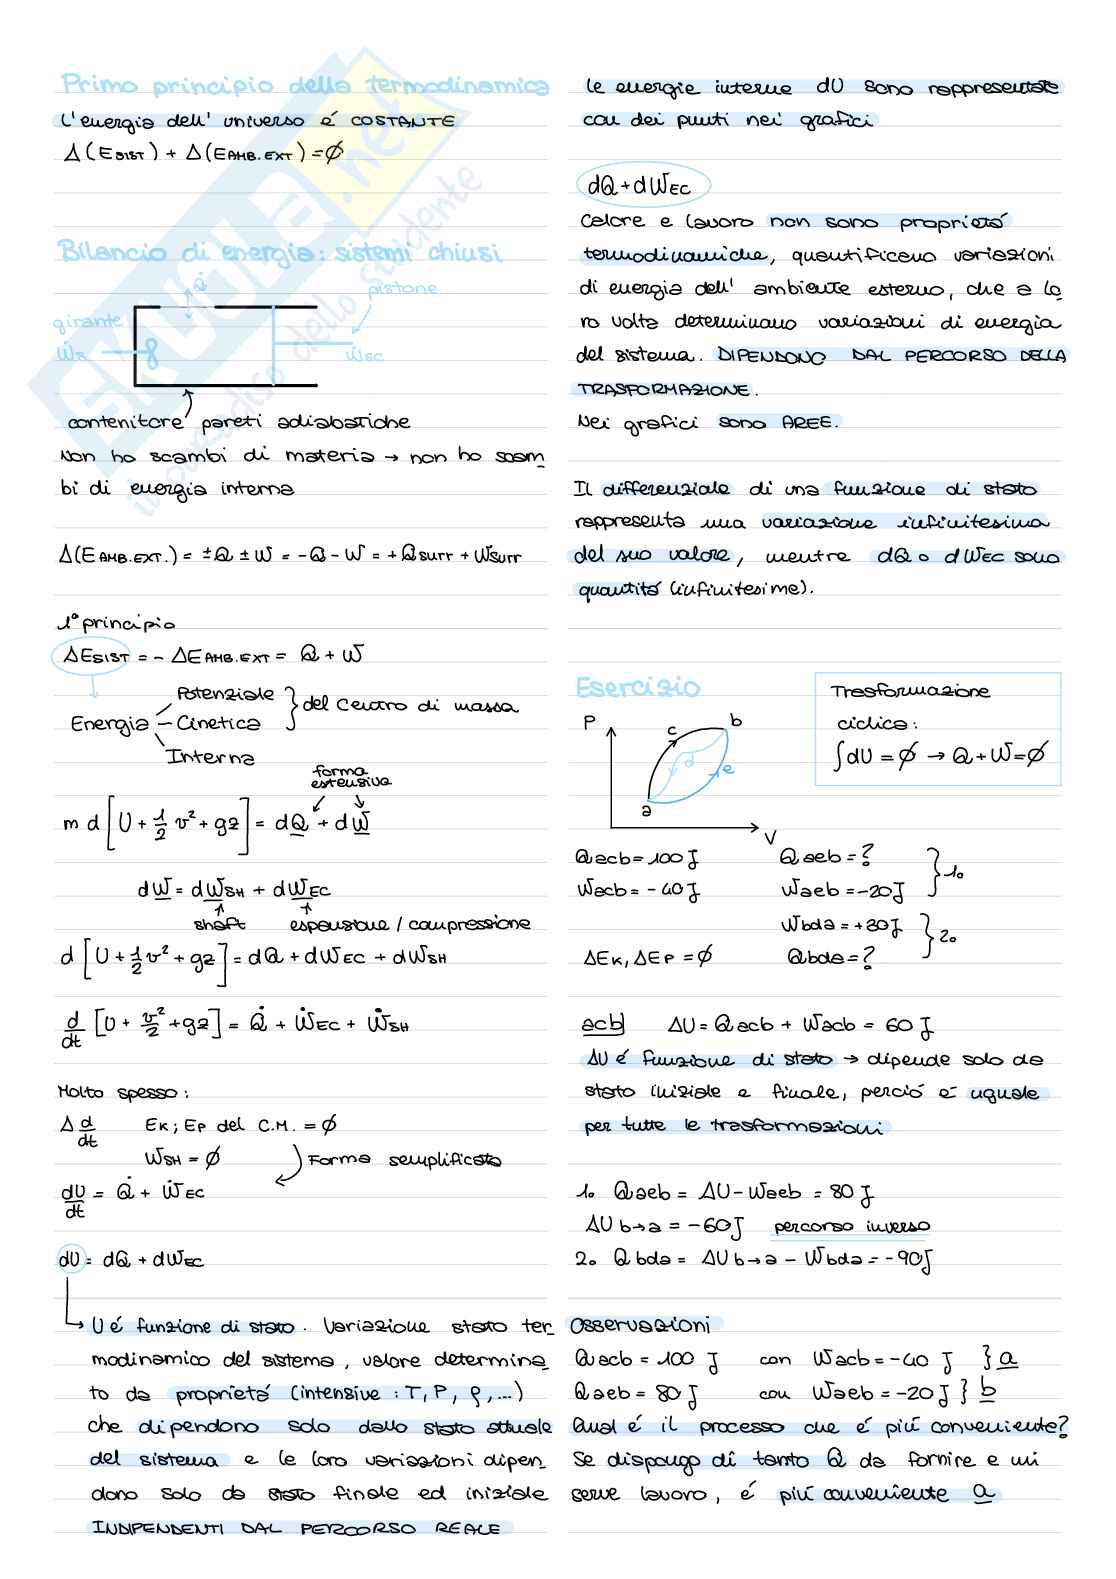 Primo principio della termodinamica
L'energia dell' universo é COSTANTE
Δ(ESIST) + Δ(EAMB.EXT) = ∅
Bilancio di energia: sistemi chiusi
Q̇
pistone
girante
ẆS
ẆEC
contenitore pareti adiabatiche
Non ho scambi di materia → non ho scam_
bi di energia interna
Δ(EAMB.EXT.) = ±Q ± W = -Q - W = +QSURR + WSURR
1° principio
ΔESIST = - ΔEAMB.EXT = Q + W
Potenziale
Energia - Cinetica } del centro di massa
Interna
forma
estensiva
m d [U + 1/2 v² + gz] = dQ + dW
dW = dWSH + dWEC
shaft espansione / compressione
d [U + 1/2 v² + gz] = dQ + dWEC + dWSH
d/dt [U + v²/2 + gz] = Q̇ + ẆEC + ẆSH
Molto spesso:
Δ d/dt EK; EP del C.M. = ∅
WSH = ∅ Forma semplificata
dU/dt = Q̇ + ẆEC
dU = dQ + dWEC
U é funzione di stato. Variazione stato ter_
modinamico del sistema, valore determina_
to da proprietá (intensive: T, P, ρ, ...)
che dipendono solo dallo stato attuale
del sistema e le loro variazioni dipen_
dono solo da stato finale ed iniziale
INDIPENDENTI DAL PERCORSO REALE
le energie interne dU sono rappresentate
con dei punti nei grafici
dQ + dWEC
Calore e lavoro non sono proprietá
termodinamiche, quantificano variazioni
di energia dell' ambiente esterno, che a lo_
ro volta determinano variazioni di energia
del sistema. DIPENDONO DAL PERCORSO DELLA
TRASFORMAZIONE.
Nei grafici sono AREE.
Il differenziale di una funzione di stato
rappresenta una variazione infinitesima
del suo valore, mentre dQ o dWEC sono
quantitá (infinitesime).
Esercizio
Trasformazione
ciclica:
∫dU = ∅ → Q + W = ∅
P
c
b
d
e
a
V
Qacb = 100 J Qaeb = ? } 1.
Wacb = - 40 J Waeb = -20 J
Wbda = +30 J } 2.
ΔEK, ΔEP = ∅ Qbda = ?
acb| ΔU = Qacb + Wacb = 60 J
ΔU é funzione di stato → dipende solo da
stato iniziale e finale, perció é uguale
per tutte le trasformazioni
1. Qaeb = ΔU - Waeb = 80 J
ΔU b→a = -60 J percorso inverso
2. Qbda = ΔU b→a - Wbda = -90 J
Osservazioni
Qacb = 100 J con Wacb = -40 J } a
Qaeb = 80 J con Waeb = -20 J } b
Qual é il processo che é piú conveniente?
Se dispongo di tanto Q da fornire e mi
serve lavoro, é piú conveniente a
SKUOLA.net
il paradiso dello studente